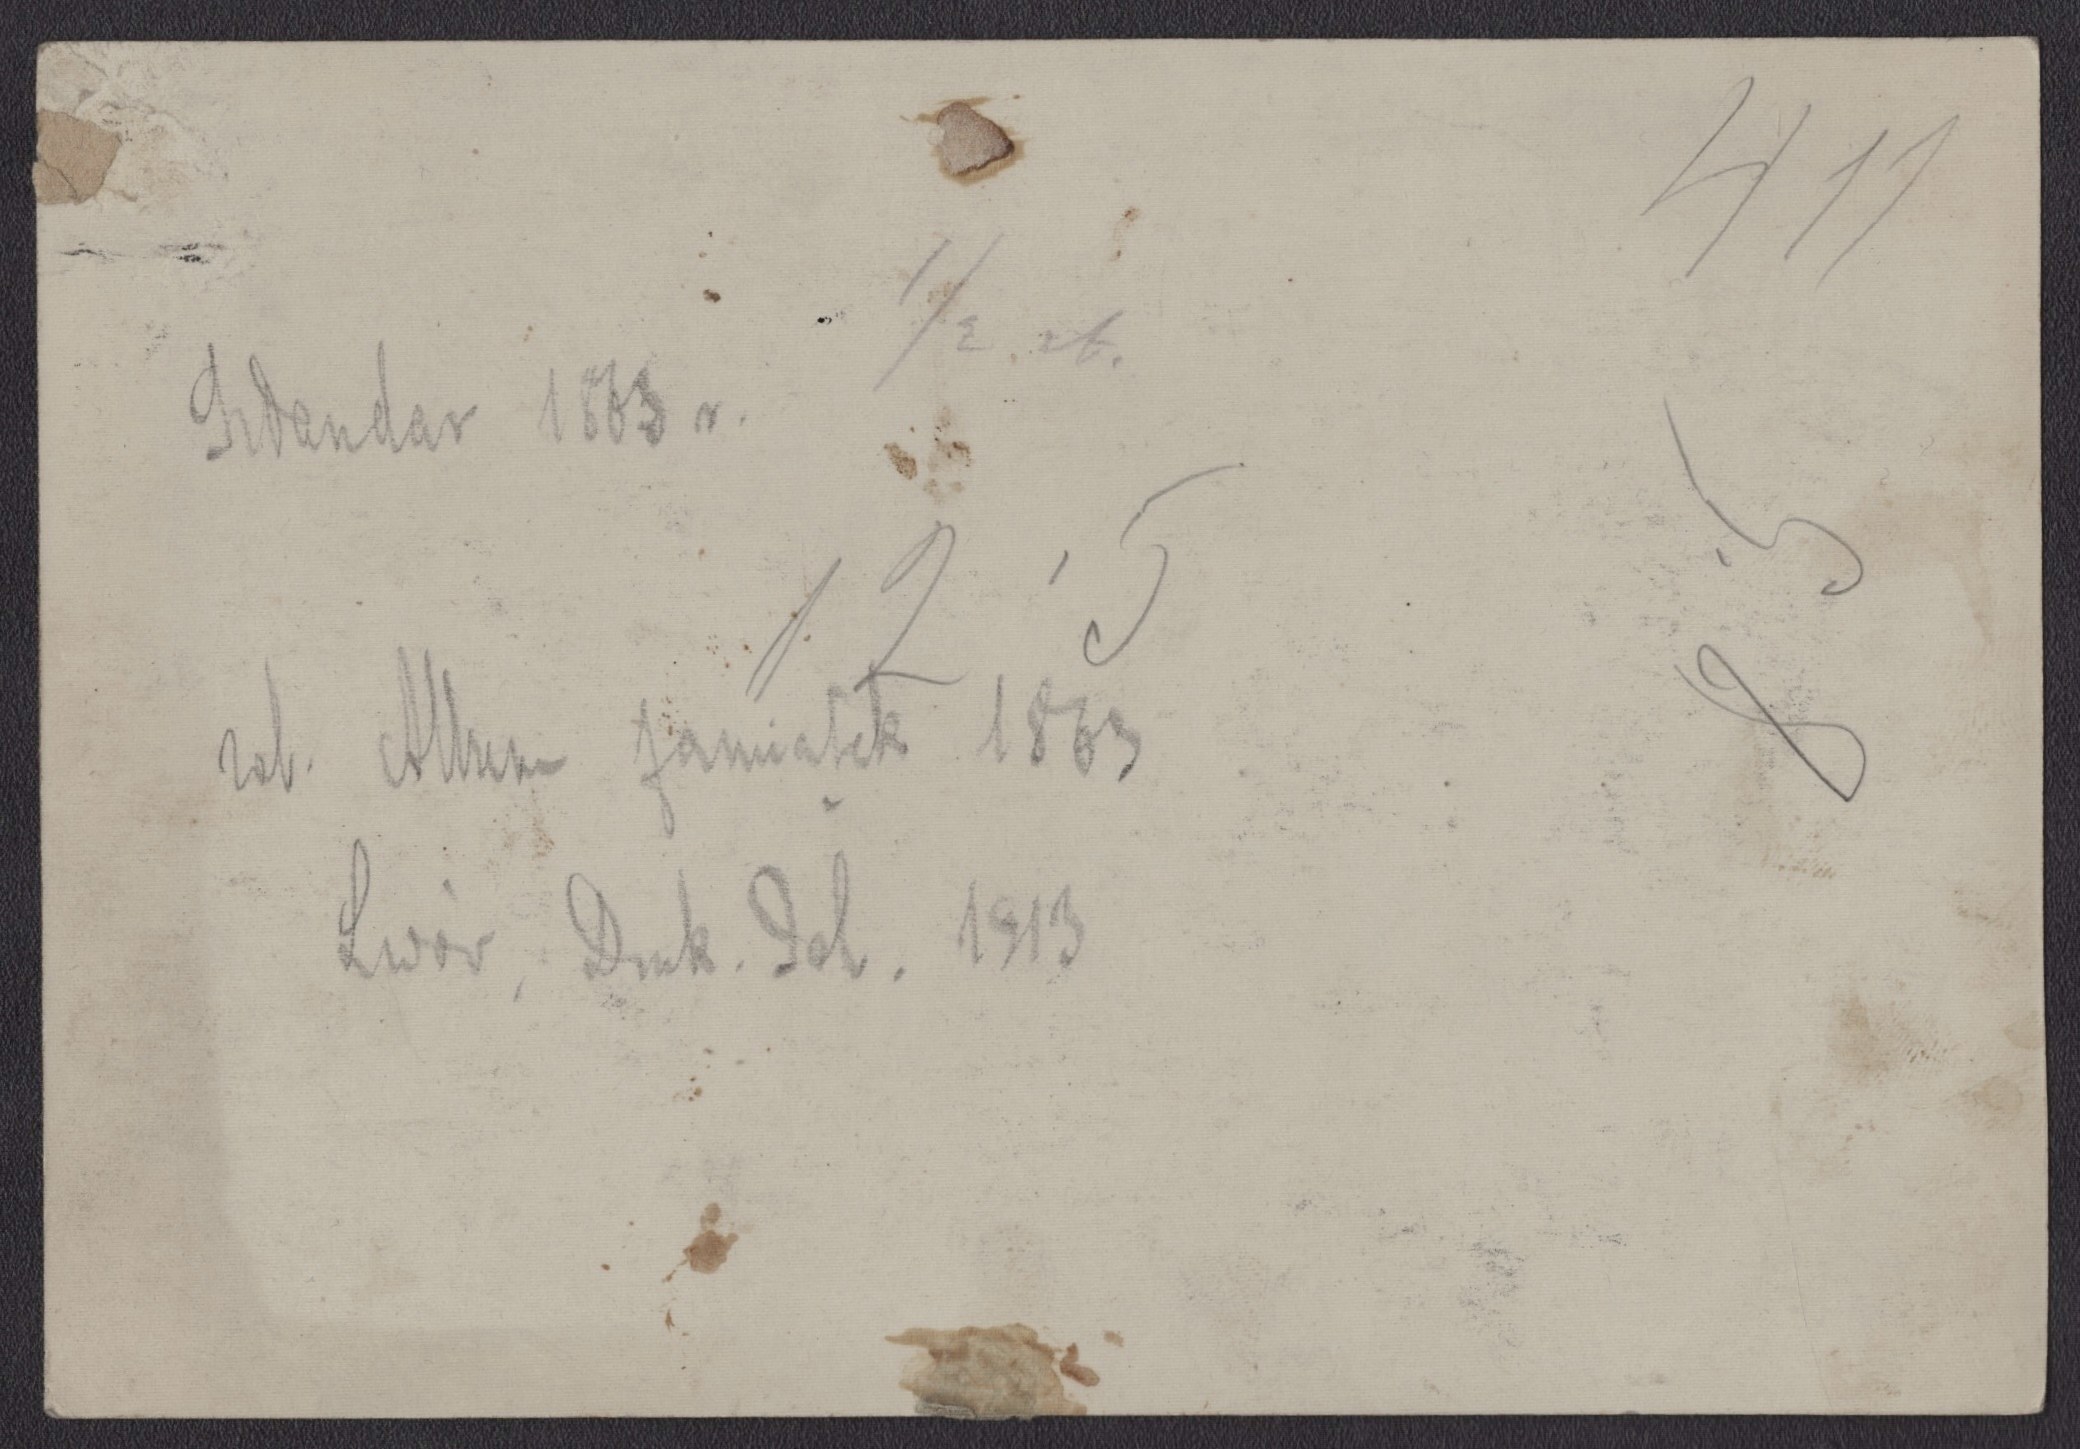 411
1/2 zb.
Sztandar 1863 r.
1.2'5
zob. Album pamiątek 1863
Lwów, Druk. Sch. 1913
85